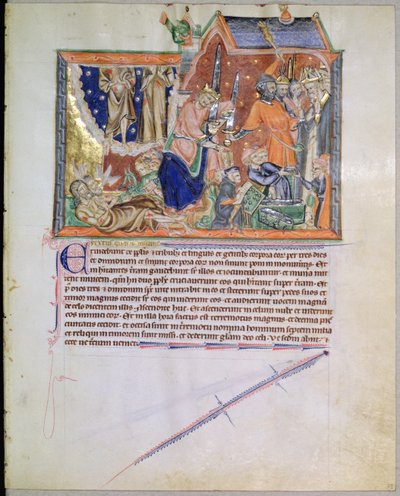 Et videbunt de pplis & tribubz et linguis et gentibz corpora eor per tres dies
et dimidium et corpora eor non sinunt poni in monumentis. Et
inhitantes terram gaudebunt sr illos et iocundabuntur et munera mit
tent invicem. qm hii duo pphe cruciaverunt eos qui hitant super terram. Et
post dies tres & dimidium vite intrabit in eos et steterunt super pedes suos et
timor magnus cecidit sr eos qui viderunt eos. et audierunt vocem magnam
de celo dicentem illis. Ascendite huc. Et ascenderunt in celum in nube et viderunt
eos inimici eor. Et in illa hora factus est terremotus magnus. et decima pars
civitatis cecidit. et occisa sunt in terremotu nomina hominum septem milia
et reliqui in timorem sunt missi. et dederunt gliam deo celi. Ve scdm abiit. &
ecce ve tercium veniet.